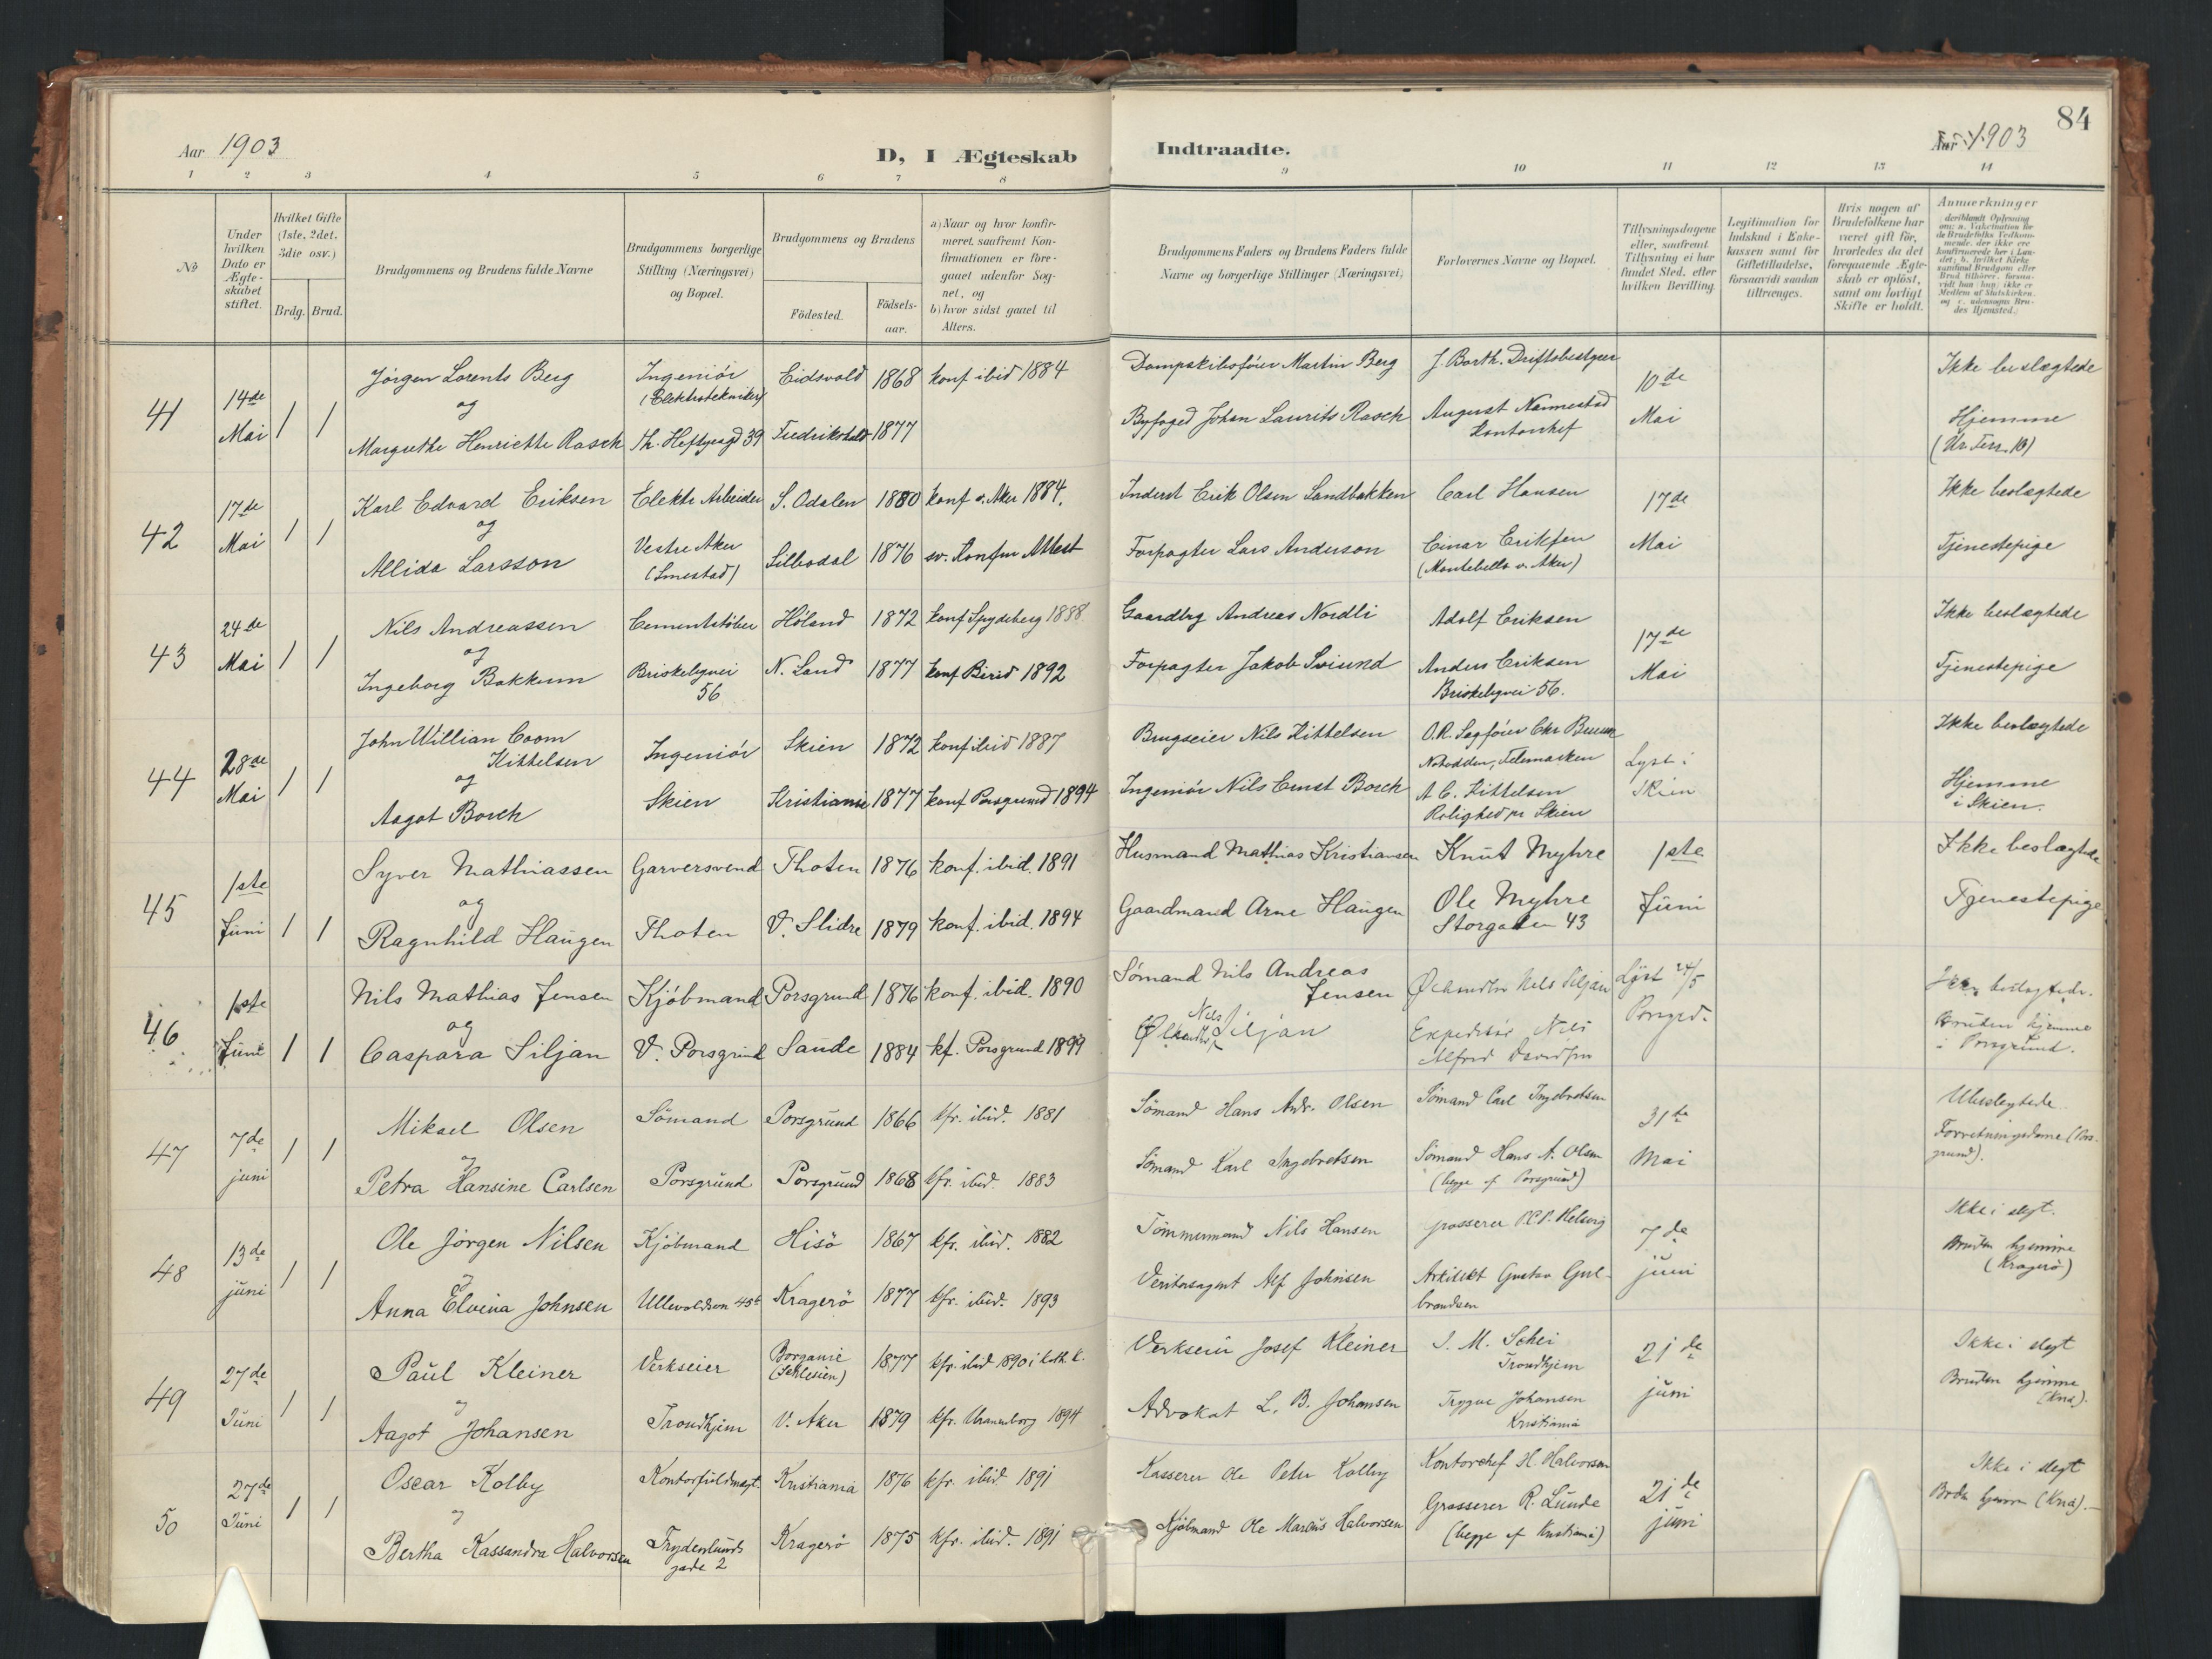 84
Aar 1903
D, I Ægteskab Indtraadte.
Aar 1903
1 2 3 4 5 6 7 8 9 10 11 12 13 14
No
Under hvilken Dato er Ægteskabet stiftet.
Hvilket Gifte (1ste, 2det, 3die osv.)
Brdg. Brud.
Brudgommens og Brudens fulde Navne
Brudgommens borgerlige Stilling (Næringsvei) og Bopæl.
Brudgommens og Brudens
Födested. Födselsaar.
a) Naar og hvor konfirmeret, saafremt Konfirmationen er foregaaet udenfor Sognet, og
b) hvor sidst gaaet til Alters.
Brudgommens Faders og Brudens Faders fulde Navne og borgerlige Stillinger (Næringsvei)
Forlovernes Navne og Bopæl.
Tillysningsdagene eller, saafremt Tillysning ei har fundet Sted, efter hvilken Bevilling.
Legitimation for Indskud i Enkekassen samt for Giftetilladelse, forsaavidt saadan tiltrænges.
Hvis nogen af Brudefolkene har været gift för, hvorledes da det foregaaende Ægteskab er oplöst, samt om lovligt Skifte er holdt.
Anmærkninger
(deriblandt Oplysning om: a. Vakcination for de Brudefolks Vedkommende, der ikke ere konfirmerede her i Landet; b. hvilket Kirkesamfund Brudgom eller Brud tilhörer, forsaavidt han (hun) ikke er Medlem af Statskirken, og c. udensogns Brudes Hjemsted.)
41 14de Mai 1 1
Jörgen Lorents Berg
og
Margrethe Henriette Rasch
Ingeniör (Elektrotekniker)
Th. Heftyesgd 39
Eidsvold 1868 konf ibid 1884
Fredrikshald 1877
Dampskibsförer Martin Berg
Byfoged Johan Laurits Rasch
J. Barth. Driftsbestyrer
August Nannestad
Kontorchef
10de Mai
Ikke beslægtede
Hjemme
(Ur. Terr. 10)
42 17de Mai 1 1
Karl Edvard Eriksen
og
Allida Larsson
Elektr Arbeider
Vestre Aker
(Smestad)
S. Odalen 1880 konf v. Aker 1884.
Silbodal 1876 sv. Konfm Attest
Inderst Erik Olsen Sandbakken
Forpagter Lars Anderson
Carl Hansen
Einar Eriksen
(Montebello v. Aker)
17de Mai
Ikke beslægtede
Tjenestepige
43 24de Mai 1 1
Nils Andreassen
og
Ingeborg Bakkum
Cementstöber
Briskebyvei 56
Höland 1872 konf Spydeberg 1888
N. Land 1877 konf Birid 1892
Gaardbrg Andreas Nordli
Forpagter Jakob Sviund
Adolf Eriksen
Anders Eriksen
Briskebyvei 56.
17de Mai
Ikke beslægtede
Tjenestepige
44 28de Mai 1 1
John Willian Coom
Kittelsen
og
Aagot Borch
Ingeniör
Skien
Skien 1872 konf ibid 1887
Kristiania 1877 konf Porsgrund 1894
Brugseier Nils Kittelsen
Ingeniör Nils Ernst Borch
O.R. Sagförer Chr Bruun
Notodden, Telemarken
A C. Kittelsen
Rolighed pr Skien
Lyst i Skien
Ikke beslægtede
Hjemme
i Skien.
45 1ste Juni 1 1
Syver Mathiassen
og
Ragnhild Haugen
Garversvend
Thoten
Thoten 1876 konf. ibid. 1891
V. Slidre 1879 konf. ibid. 1894
Husmand Mathias Kristiansen
Gaardmand Arne Haugen
Knut Myhre
Ole Myhre
Storgaten 43
1ste Juni
Ikke beslægtede
Tjenestepige
46 1ste Juni 1 1
Nils Mathias Jensen
og
Caspara Siljan
Kjöbmand
V. Porsgrund
Porsgrund 1876 konf. ibid. 1890
Saude 1884 kf. Porsgrund 1899
Sömand Nils Andreas
Jensen
Nils Siljan
Nils Siljan
Expeditör Nils
Alfred Davidsen
Lyst 24/5
Porsgrd.
Ikke beslagtede.
Bruden hjemme
i Porsgrund.
47 7de juni 1 1
Mikael Olsen
og
Petra Hansine Carlsen
Sömand
Porsgrund
Porsgrund 1866 kfr. ibid. 1881
Porsgrund 1868 kfr. ibid. 1883
Sömand Hans Andr. Olsen
Sömand Karl Ingebretsen
Sömand Carl Ingebretsen
Sömand Hans A. Olsen
(begge af Porsgrund)
31te Mai
Ubeslegtede
Forretningsdame (Porsgrund).
48 13de juni 1 1
Ole Jörgen Nilsen
og
Anna Elvina Johnsen
Kjöbmand
Ullevoldsvn 45b
Hisö 1867 kfr. ibid. 1882
Kragerö 1877 kfr. ibid. 1893
Tömmermand Nils Hansen
Veritasagent Alf Johnsen
grosserer P.C.P. Helwig
Arkitekt Gustav Gulbrandsen
7de juni
Ikke i slegt.
Bruden hjemme
(Kragerö)
49 27de Juni 1 1
Paul Kleiner
og
Aagot Johansen
Verkseier
Trondhjem
Borganie
(Schlesien) 1877 kfr. ibid 1890 i kath. k.
V. Aker 1879 kfr. Uranienborg 1894
Verkseier Josef Kleiner
Advokat L. B. Johansen
I. M. Schei
Trondhjem
Trygve Johansen
Kristiania
21de juni
Ikke i slegt
Bruden hjemme
(Kna).
50 27de Juni 1 1
Oscar Kolby
og
Bertha Kassandra Halvorsen
Kontorfuldmægt.
Frydenlunds
gade 2
Kristiania 1876 kfr. ibid. 1891
Kragerö 1875 kfr. ibid. 1891
Kasserer Ole Peter Kolby
Kjöbmand Ole Marcus Halvorsen
Kontorchef H. Halvorsen
Grosserer R. Lunde
(begge af Kristiania)
21de juni
Ikke i slegt
Brdn hjemme (Kna).